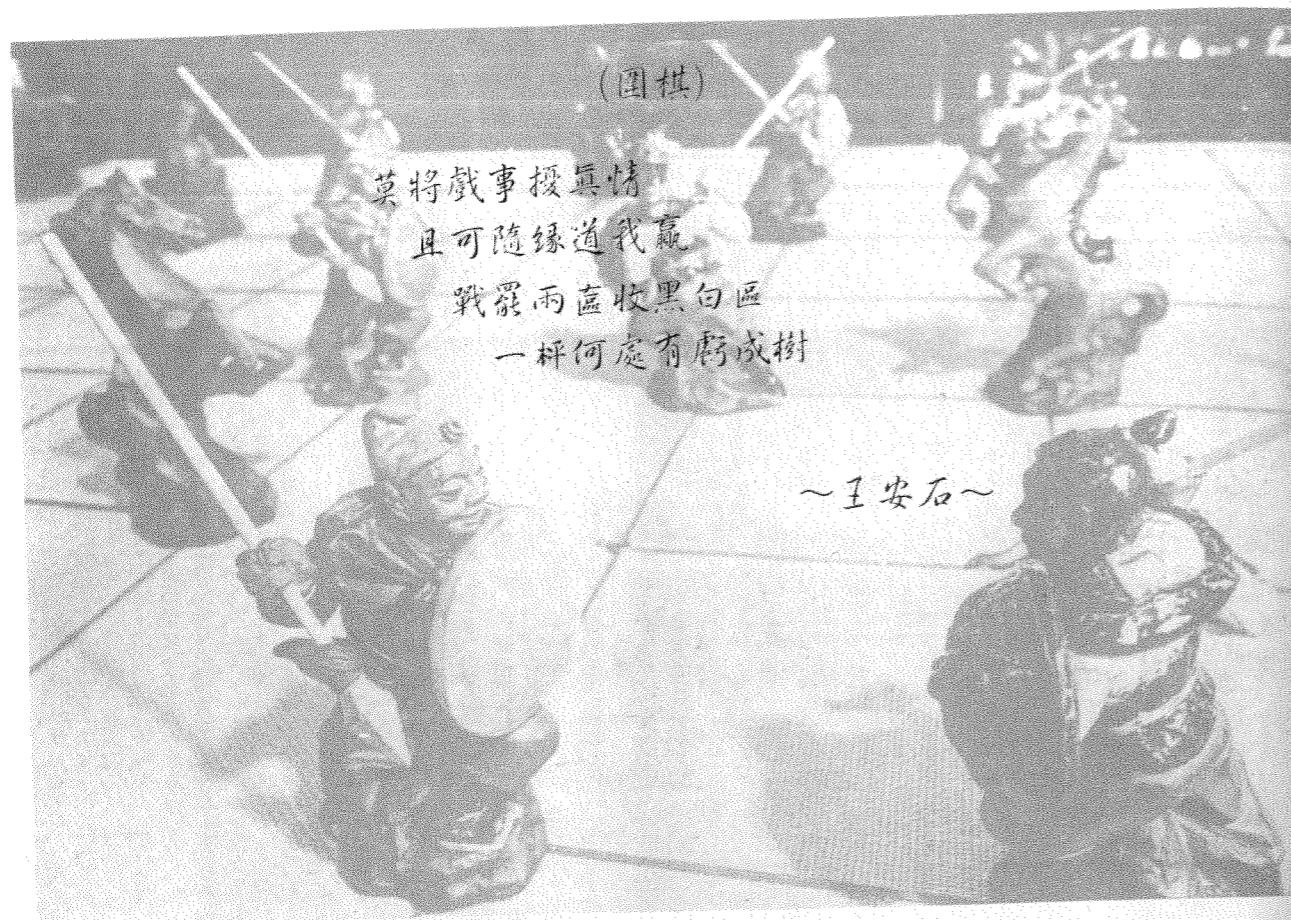 (圍棋)
莫將戲事擾真情
且可隨緣道我贏
戰罷兩奩收黑白區
一枰何處有虧成樹
~王安石~